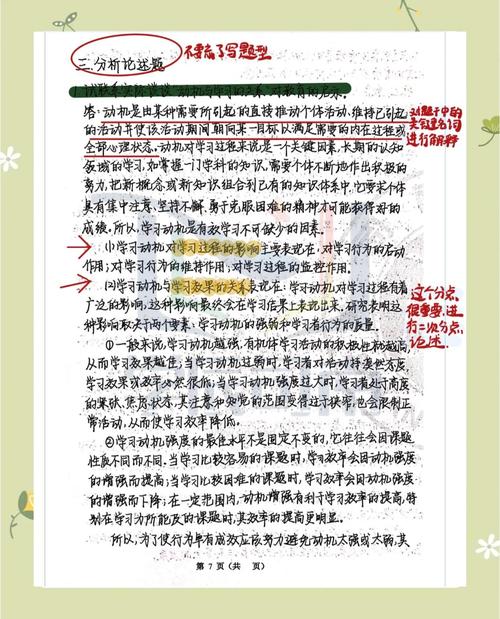 三.分析论述题
不要忘了写题型
1.试联系实际谈谈动机与学习的关系,对教育的启示
答:动机是由某种需要所引起的直接推动个体活动,维持已引起
的活动并使该活动期间朝向某一目标以满足需要的内在过程或
全部心理状态,动机对学习过程来说是一个关键因素,长期的认知
领域的学习,如掌握一门学科的知识,需要个体不断地作出积极的
努力,把新概念或新知识组合到已有的知识体系中,它要求个体
具有集中注意、坚持不懈、勇于克服困难的精神才可能获得好的
成绩。所以,学习动机是有效学习不可缺少的因素。
对题干中的
关键名词
进行解释
(1)学习动机对学习过程的影响主要表现在,对学习行为的启动
作用;对学习行为的维持作用;对学习过程的监控作用。
(2)学习动机与学习效果的关系表现在:学习动机对学习过程有着
广泛的影响,这种影响最终会在学习结果上表现出来,研究表明这
种影响取决于两个要素:学习动机的强弱和学习者行为的质量。
这个分点
很重要,进
行二次分点
论述
①一般来说,学习动机越强,有机体学习活动的积极性就越高,
从而学习效果越佳;当学习动机过弱时,学习者对活动持漠然态度
学习效果或效率必然很低;当学习动机强度过大时,学习者处于高度
的紧张、焦虑状态,其注意和知觉的范围变得过于狭窄,也会限制正
常活动,从而使学习效率降低。
②学习动机强度的最佳水平不是固定不变的,它往往会因课题
性质不同而不同,当学习比较容易的课题时,学习效率会因动机强度
的增强而提高;当学习比较困难的课题时,学习效率会因动机强度
的增强而下降;在一定范围内,动机增强有利于学习效率的提高,特
别在学习力所能及的课题时,其效率的提高更明显。
所以,为了使行为卓有成效应该努力避免动机太强或太弱,其
第 7 页(共 页)